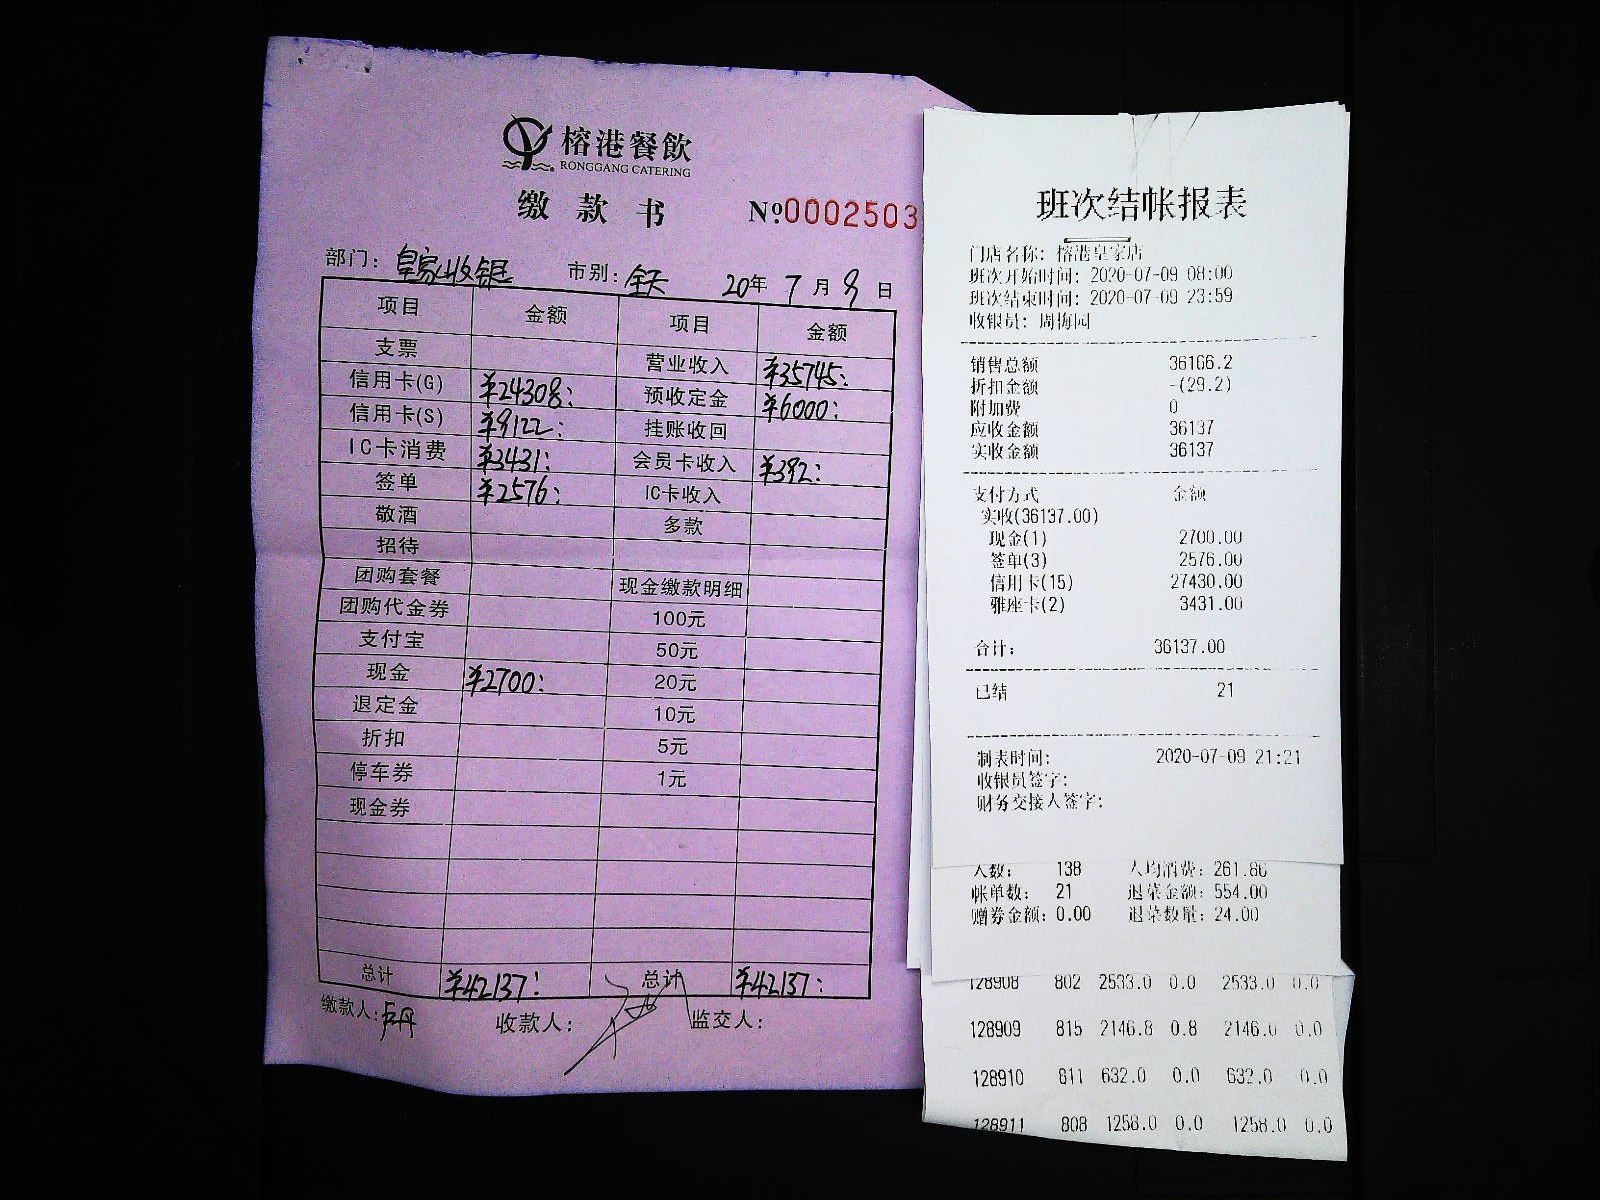 榕港餐飲
RONGGANG CATERING
缴款书
№0002503
部门: 皇家收银 市别: 全天 20年 7月 9日
项目 金额 项目 金额
支票 营业收入 ¥35745:
信用卡(G) ¥24308: 预收定金 ¥6000:
信用卡(S) ¥9122: 挂账收回
IC卡消费 ¥3431: 会员卡收入 ¥392:
签单 ¥2576: IC卡收入
敬酒 多款
招待
团购套餐 现金缴款明细
团购代金券 100元
支付宝 50元
现金 ¥2700: 20元
退定金 10元
折扣 5元
停车券 1元
现金券
总计 ¥42137: 总计 ¥42137:
缴款人: 收款人: 监交人:
班次结帐报表
门店名称: 榕港皇家店
班次开始时间: 2020-07-09 08:00
班次结束时间: 2020-07-09 23:59
收银员: 周梅园
销售总额 36166.2
折扣金额 -(29.2)
附加费 0
应收金额 36137
实收金额 36137
支付方式 金额
实收(36137.00)
现金(1) 2700.00
签单(3) 2576.00
信用卡(15) 27430.00
雅座卡(2) 3431.00
合计: 36137.00
已结 21
制表时间: 2020-07-09 21:21
收银员签字:
财务交接人签字:
人数: 138 人均消费: 261.86
帐单数: 21 退菜金额: 554.00
赠券金额: 0.00 退菜数量: 24.00
128908 802 2533.0 0.0 2533.0 0.0
128909 815 2146.8 0.8 2146.0 0.0
128910 811 632.0 0.0 632.0 0.0
128911 808 1258.0 0.0 1258.0 0.0